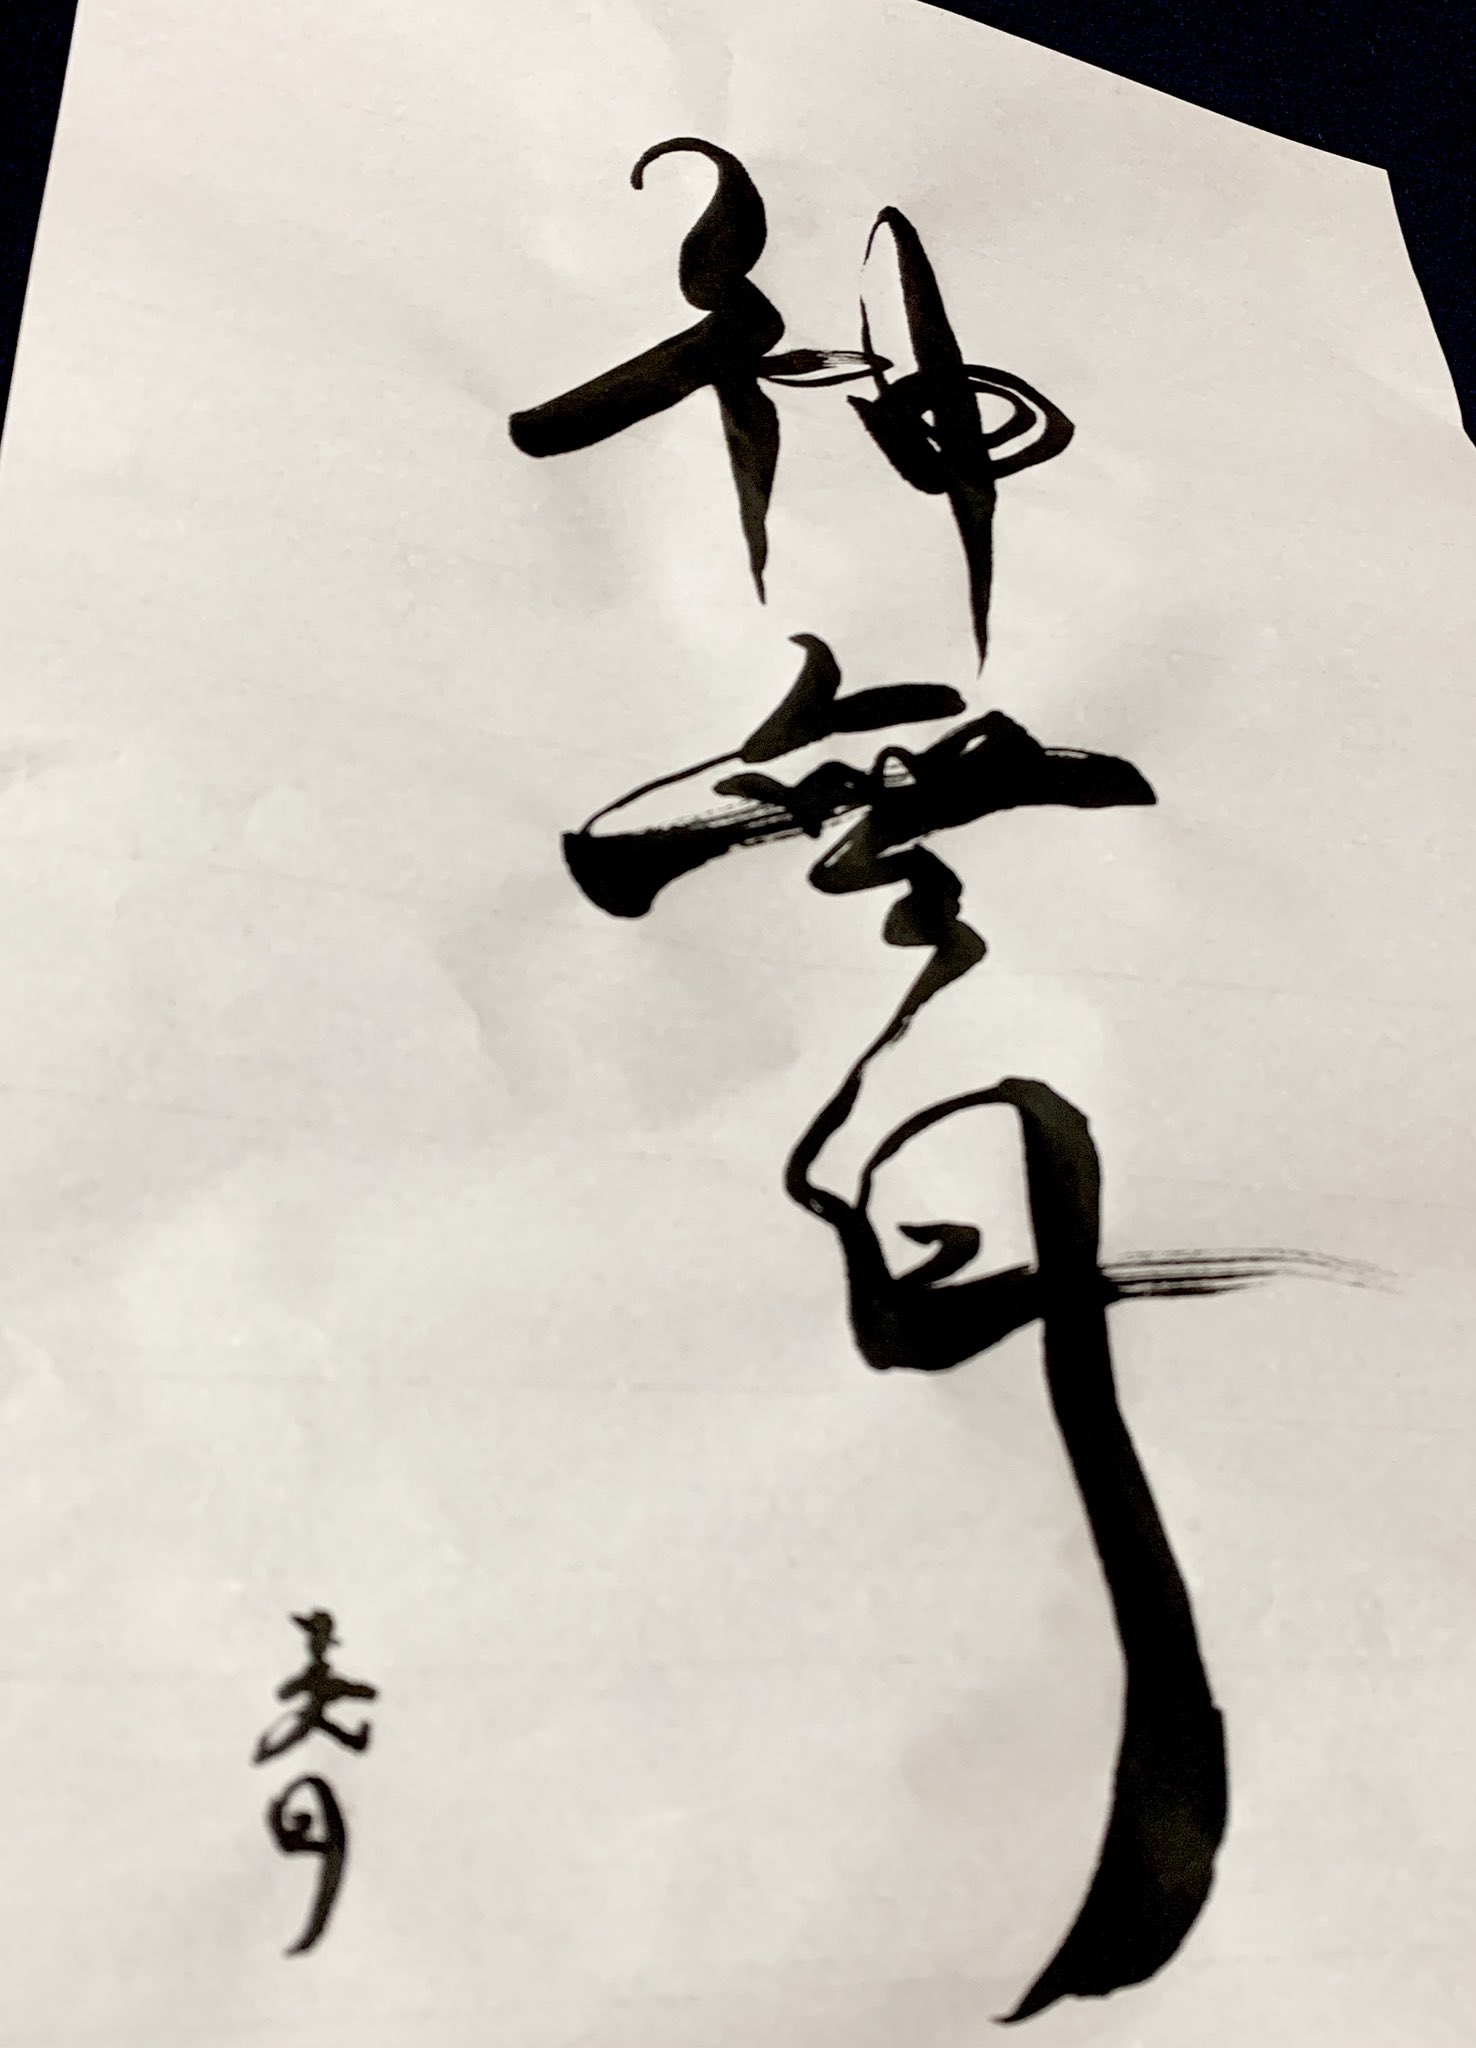 神無月
美月